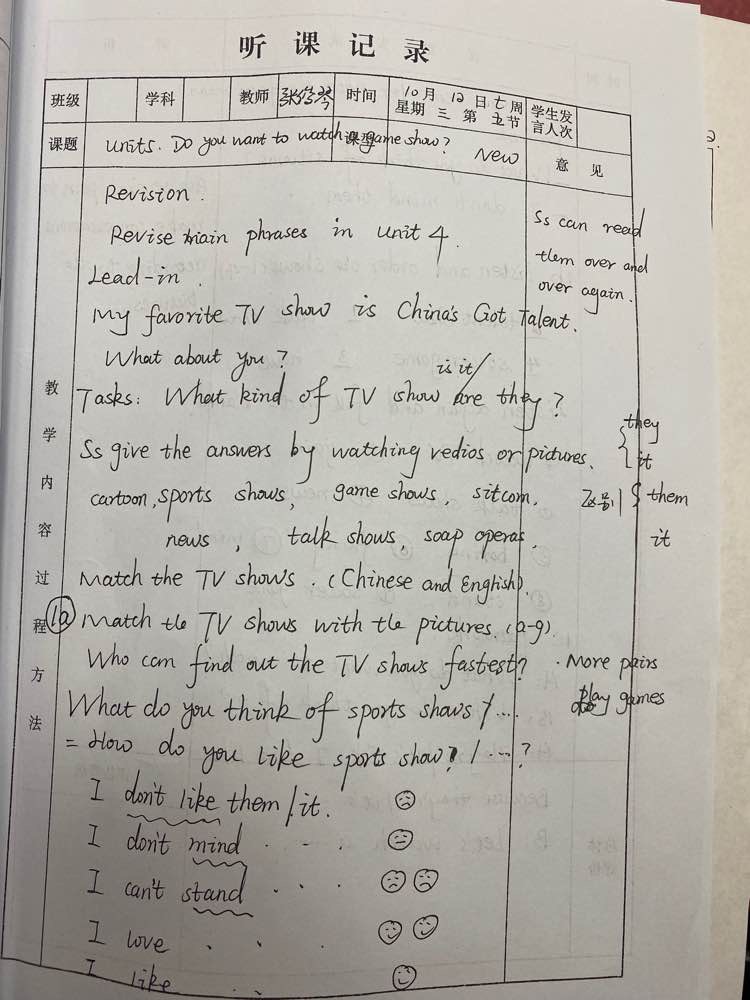 听课记录
班级 学科 教师 时间 10月12日七周 星期三第五节 学生发言人次
课题 Units. Do you want to watch a game show? 课型 New 意见
教学内容过程方法
Revision.
Revise main phrases in unit 4.
Ss can read
them over and
over again.
Lead-in.
My favorite TV show is China's Got Talent.
What about you?
is it/
Tasks: What kind of TV show are they?
Ss give the answers by watching vedios or pictures.
they
it
cartoon, sports shows, game shows, sitcom,
区别 them
it
news, talk shows, soap operas.
Match the TV shows. (Chinese and English).
1a Match the TV shows with the pictures. (a-g).
Who can find out the TV shows fastest?
. More pairs
play games
What do you think of sports shows / ....
= How do you like sports show? / ...?
I don't like them / it.
I don't mind . . .
I can't stand . . .
I love . . .
I like .